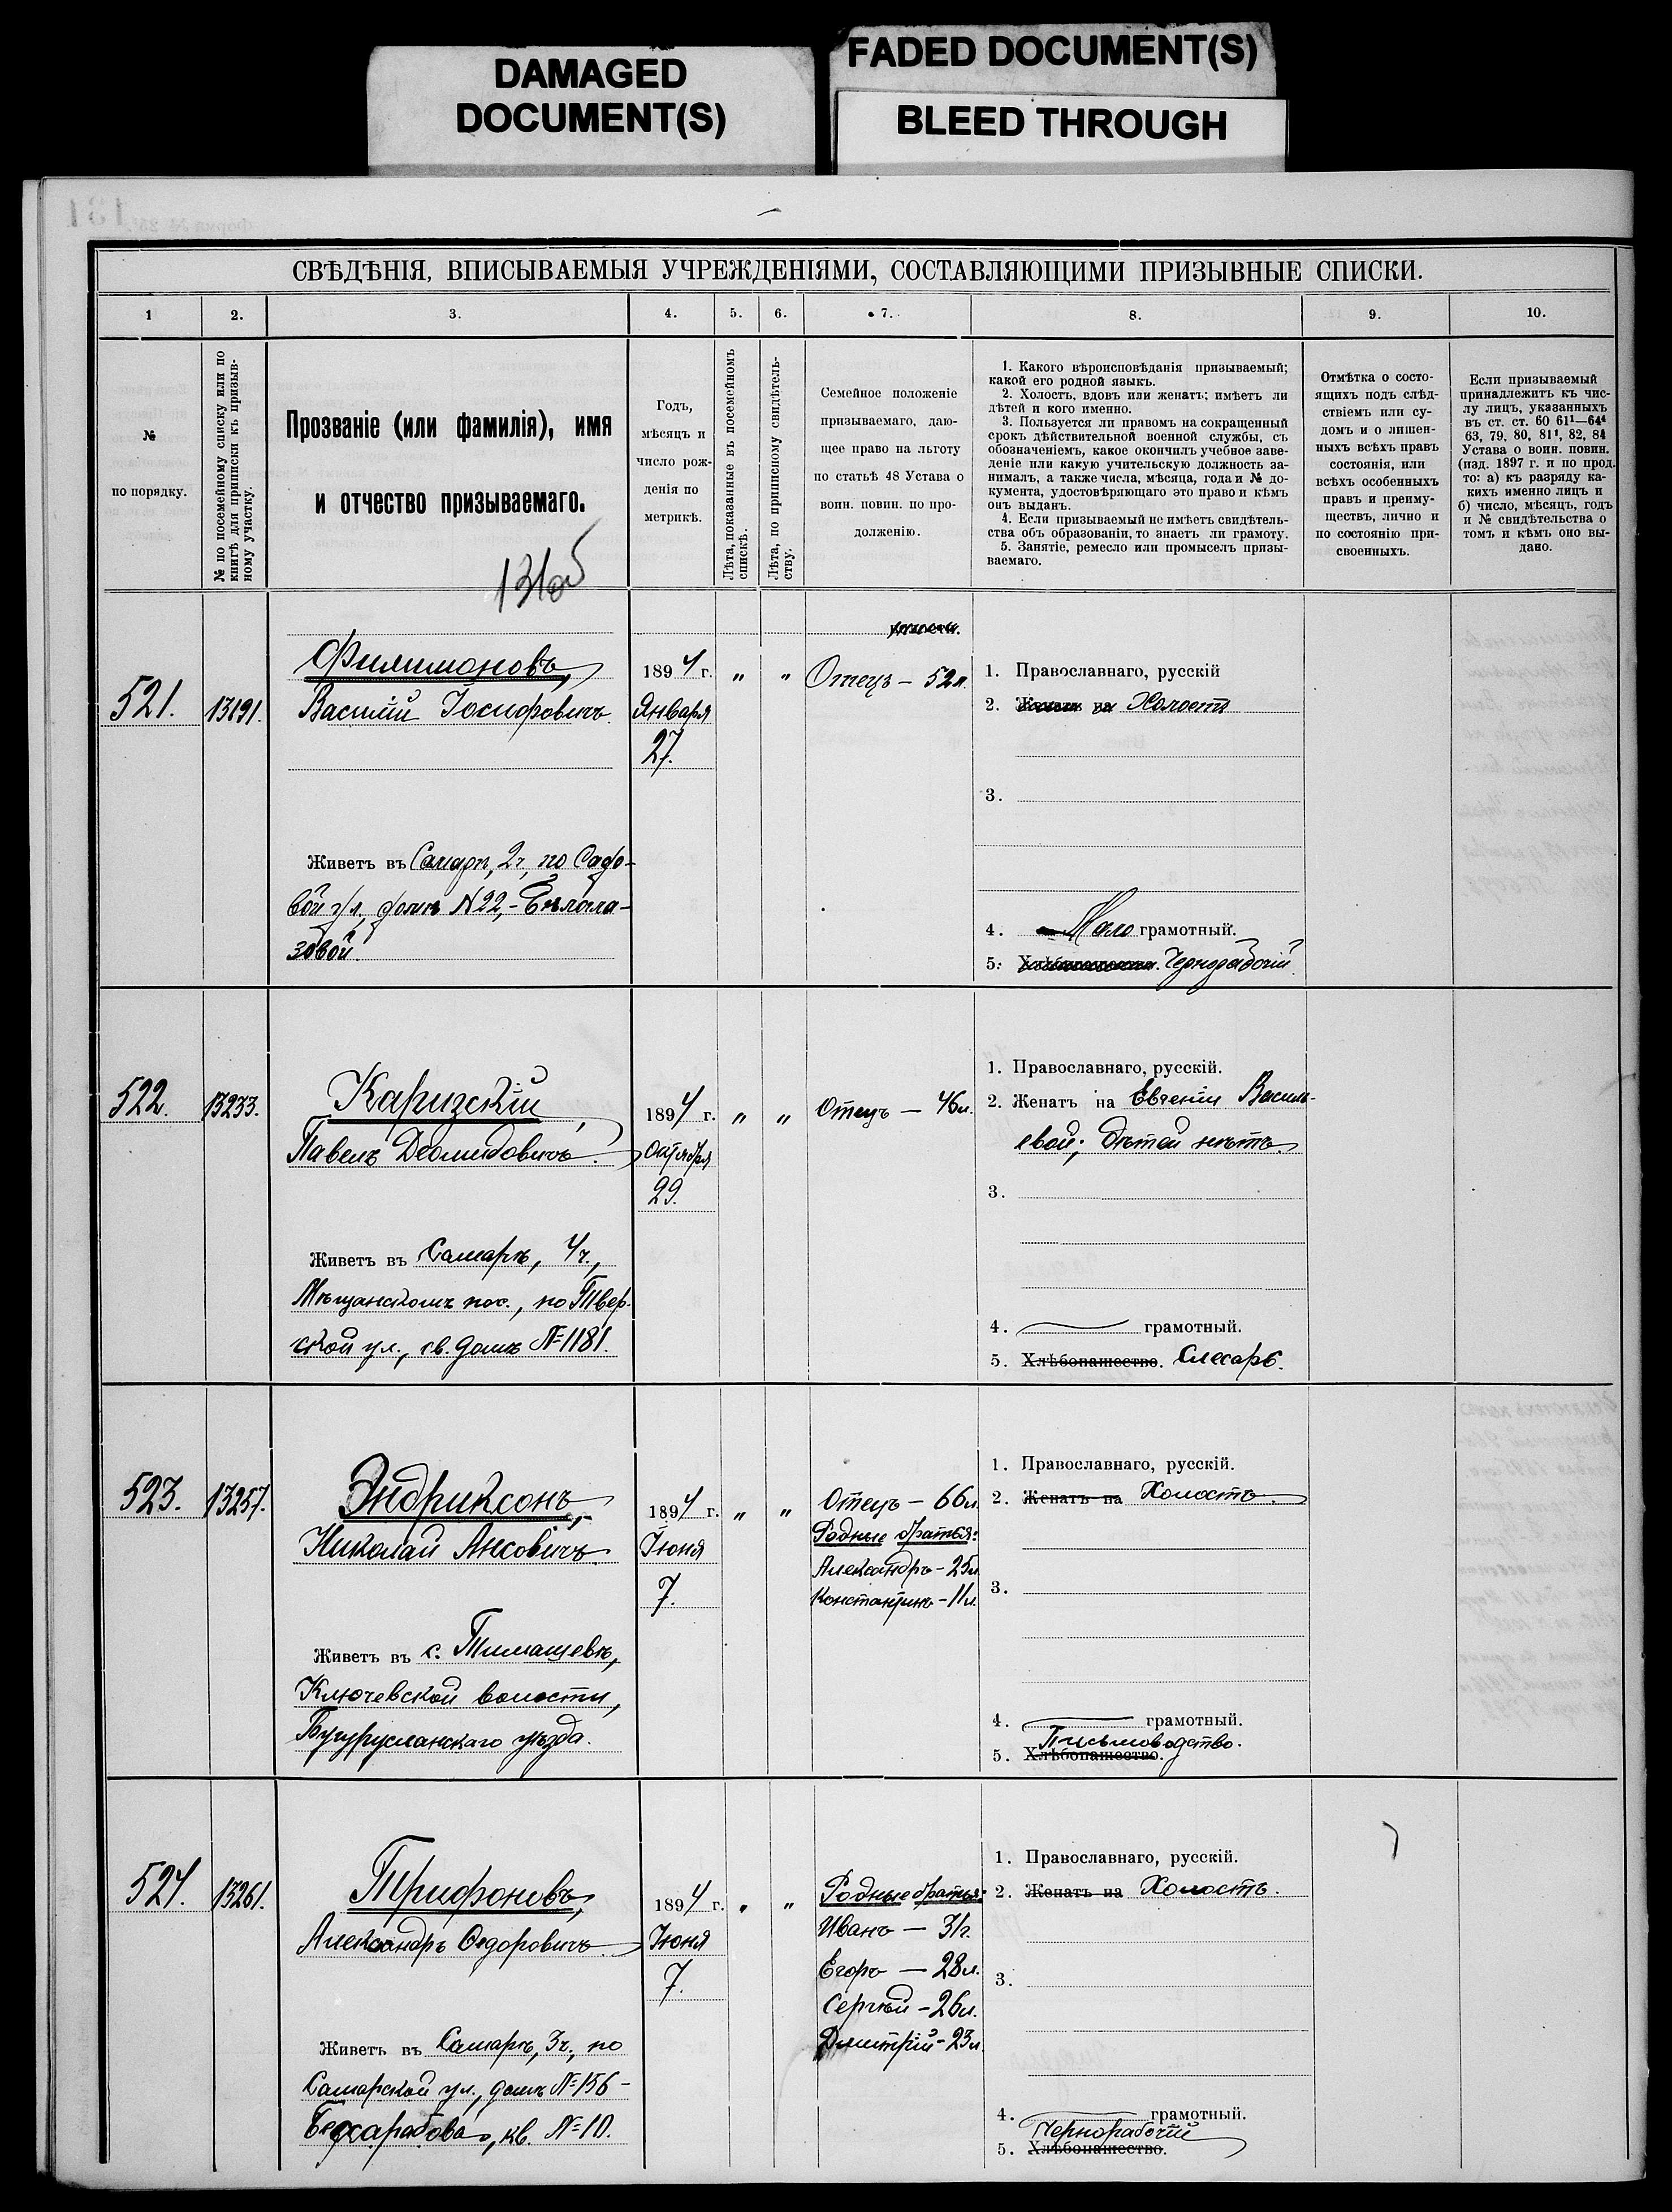 DAMAGED
DOCUMENT(S)
FADED DOCUMENT(S)
BLEED THROUGH
СВѢДѢНІЯ, ВПИСЫВАЕМЫЯ УЧРЕЖДЕНІЯМИ, СОСТАВЛЯЮЩИМИ ПРИЗЫВНЫЕ СПИСКИ.
1 2. 3. 4. 5. 6. 7. 8. 9. 10.
№
по порядку.
№ по посемейному списку или по
книгѣ для приписки къ призыв-
ному участку.
Прозваніе (или фамилія), имя
и отчество призываемаго.
131об
Годъ,
мѣсяцъ и
число рож-
денія по
метрикѣ.
Лѣта, показанные въ посемейномъ
спискѣ.
Лѣта, по приписному свидѣтель-
ству.
Семейное положеніе
призываемаго, даю-
щее право на льготу
по статьѣ 48 Устава о
воин. повин. по про-
долженію.
1. Какого вѣроисповѣданія призываемый;
какой его родной языкъ.
2. Холостъ, вдовъ или женатъ; имѣетъ ли
дѣтей и кого именно.
3. Пользуется ли правомъ на сокращенный
срокъ дѣйствительной военной службы, съ
обозначеніемъ, какое окончилъ учебное заве-
деніе или какую учительскую должность за-
нималъ, а также числа, мѣсяца, года и № до-
кумента, удостовѣряющаго это право и кѣмъ
онъ выданъ.
4. Если призываемый не имѣетъ свидѣтель-
ства объ образованіи, то знаетъ ли грамоту.
5. Занятіе, ремесло или промыселъ призы-
ваемаго.
Отмѣтка о состо-
ящихъ подъ слѣд-
ствіемъ или су-
домъ и о лишен-
ныхъ всѣхъ правъ
состоянія, или
всѣхъ особенныхъ
правъ и преиму-
ществъ, лично и
по состоянію при-
своенныхъ.
Если призываемый
принадлежитъ къ чис-
лу лицъ, указанныхъ
въ ст. ст. 60 61¹—64⁴
63, 79, 80, 81¹, 82, 84
Устава о воин. повин.
(изд. 1897 г. и по прод.
то: а) къ разряду ка-
кихъ именно лицъ и
б) число, мѣсяцъ, годъ
и № свидѣтельства о
томъ и кѣмъ оно вы-
дано.
521.
13191.
Филимоновъ,
Василій Іосифовичъ.
Живетъ въ Самарѣ, 2ч, по Садо-
вой ул, домъ №22,-
зовой.
1894 г.
Января
27.
" "
Отецъ — 52л.
1. Православнаго, русскій
2. Женатъ на Холостъ
3.
4. Мало грамотный.
5. Хлѣбопашество. Чернорабочій.
522.
13233.
Каризскій,
Павелъ Деомидовичъ.
Живетъ въ Самарѣ, 4ч.,
Мѣщанскомъ пос., по Твер-
ской ул., св. домъ №1181.
1894 г.
Октября
29.
" "
Отецъ — 46л.
1. Православнаго, русскій.
2. Женатъ на Евгеніи Василь-
евой; дѣтей нѣтъ.
3.
4. грамотный.
5. Хлѣбопашество. Слесарь.
523.
13257.
Эндриксонъ,
Николай Ансовичъ.
Живетъ въ с. Тимашевѣ,
Ключевской волости,
Бугурусланскаго уѣзда.
1894 г.
Іюня
7.
" "
Отецъ — 66л.
Родные братья:
Александръ - 25л.
Константинъ - 11л.
1. Православнаго, русскій.
2. Женатъ на Холостъ.
3.
4. грамотный.
Письмоводство.
5. Хлѣбопашество.
524.
13261.
Трифоновъ,
Александръ Ѳедоровичъ.
Живетъ въ Самарѣ, 3ч., по
Самарской ул., домъ №156 -
кв. №10.
1894 г.
Іюня
7.
" "
Родные братья:
Иванъ — 31г.
Егоръ — 28л.
Сергѣй - 26л.
Дмитрій - 23л.
1. Православнаго, русскій.
2. Женатъ на Холостъ.
3.
4. грамотный.
Чернорабочій
5. Хлѣбопашество.